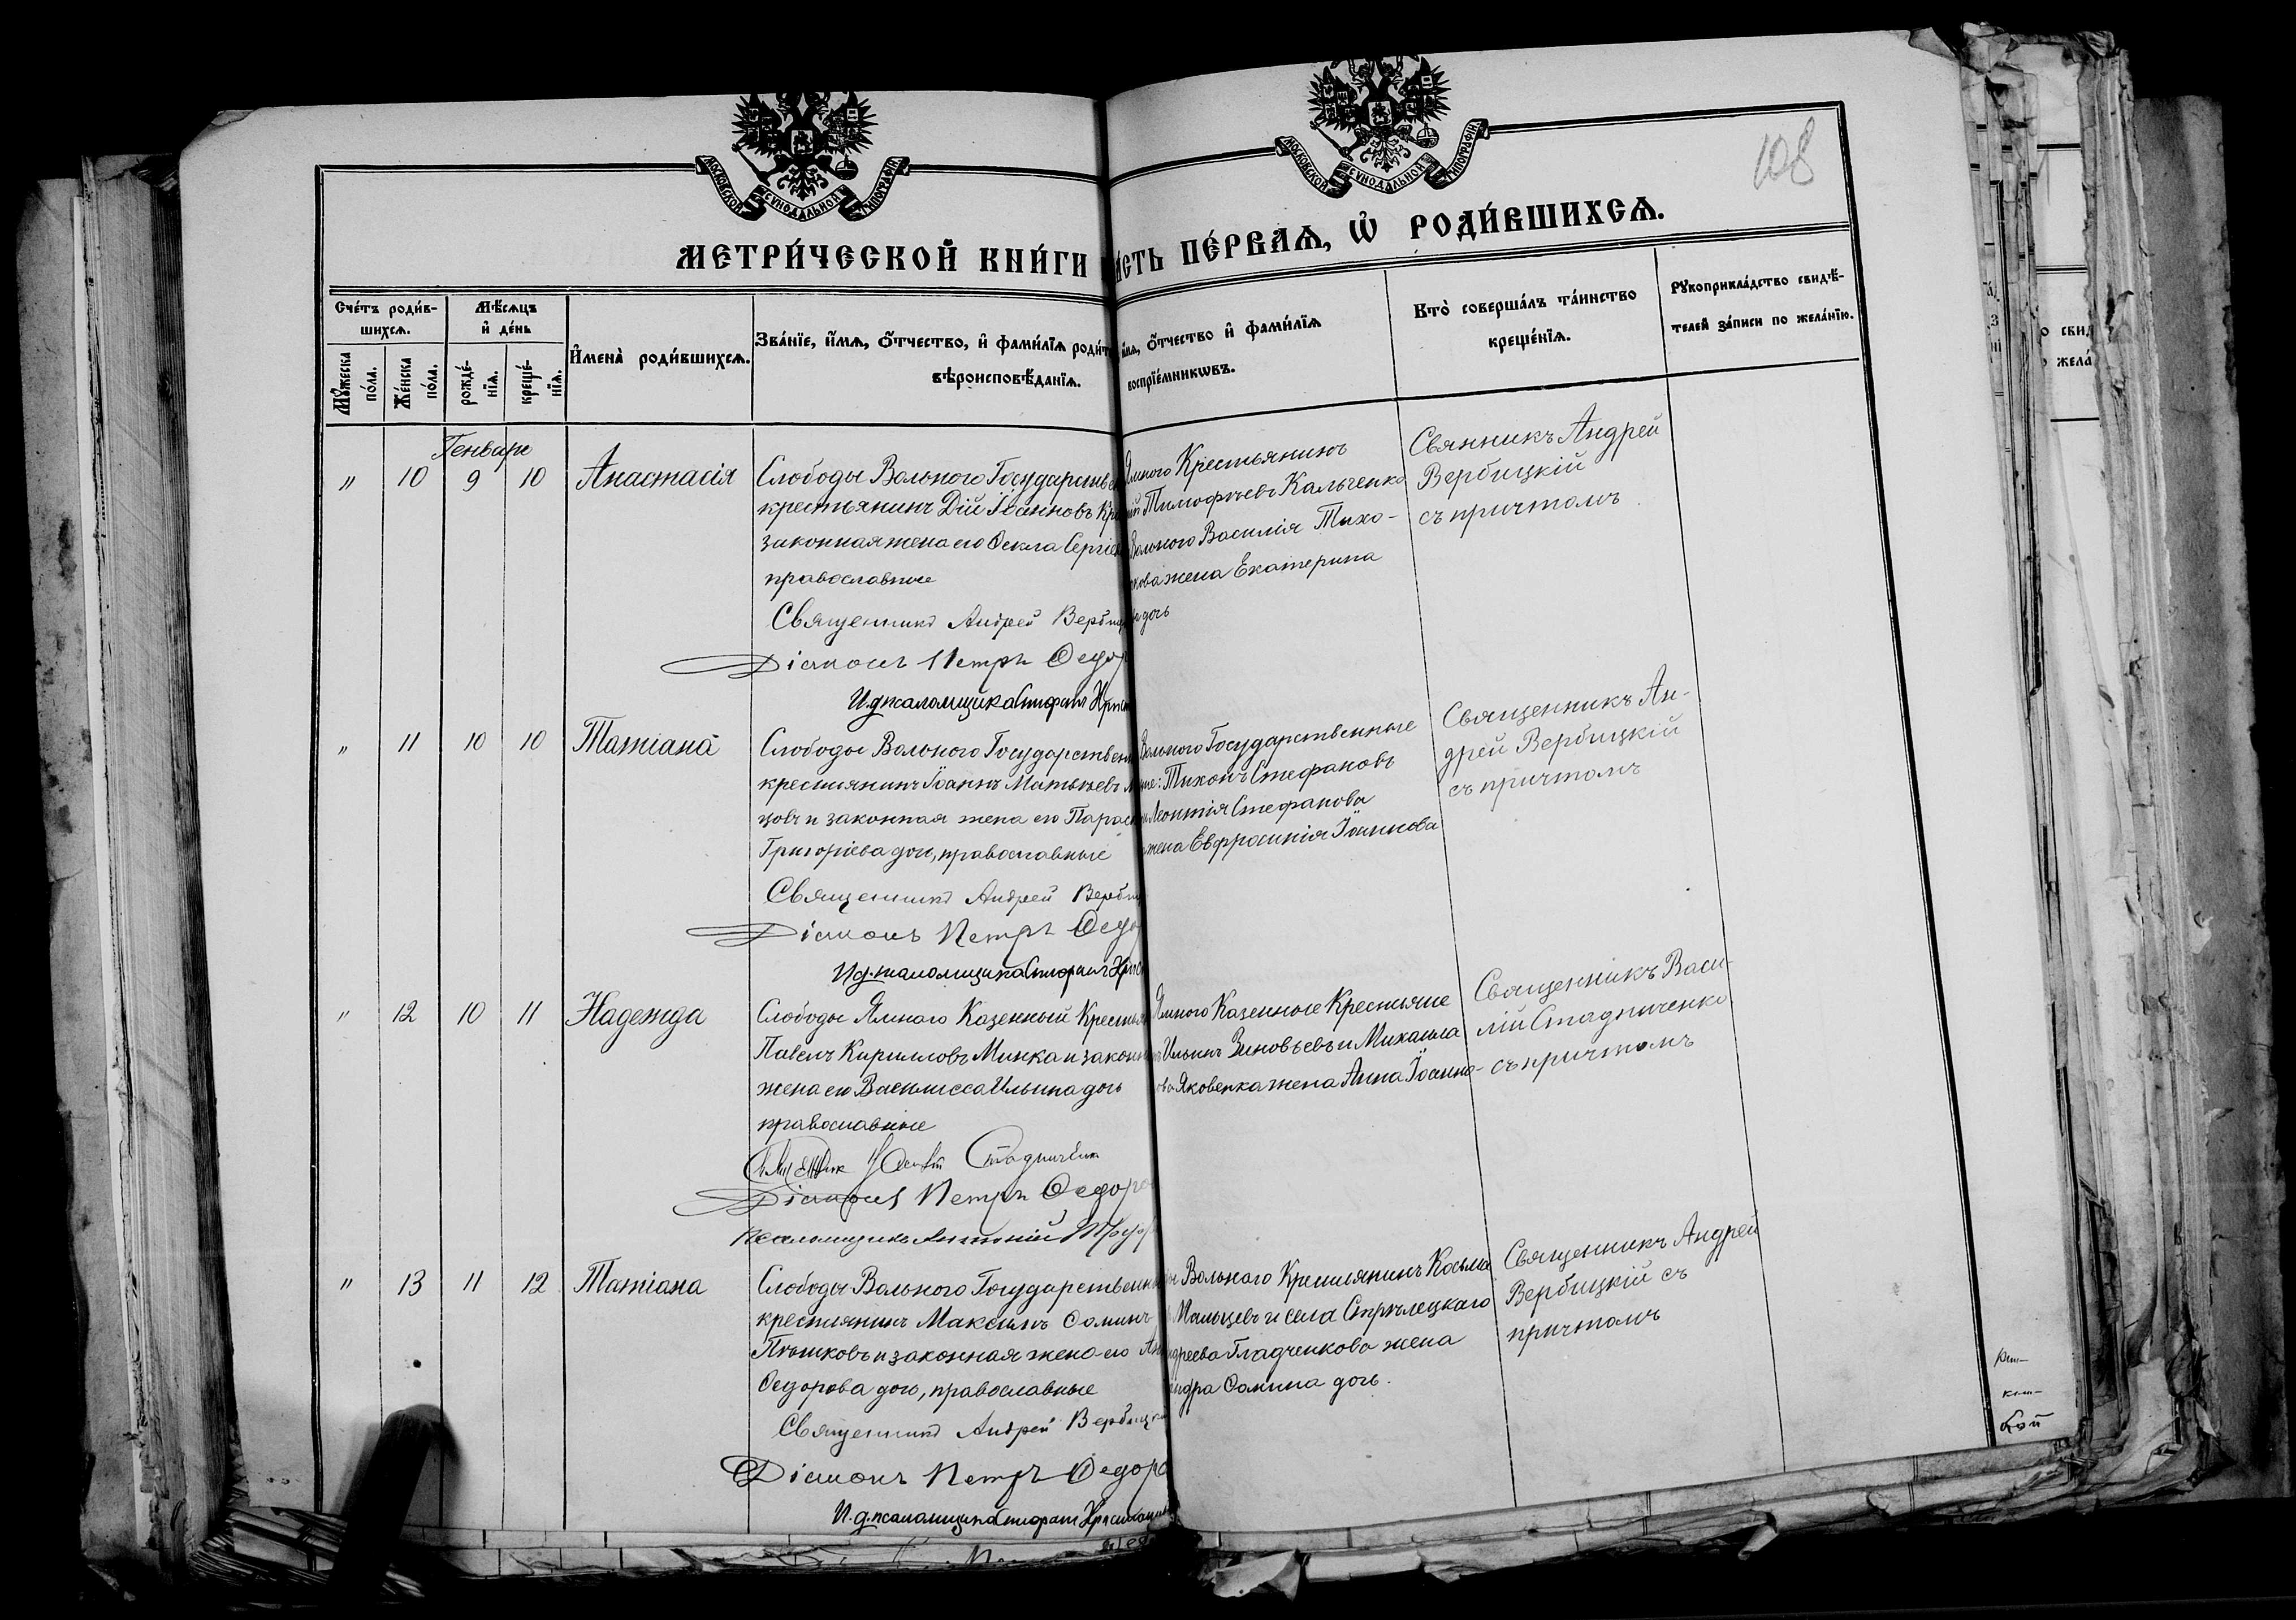 МОСКОВСКОЙ СѴНОДАЛЬНОЙ ТИПОГРАФІИ.
МОСКОВСКОЙ СѴНОДАЛЬНОЙ ТИПОГРАФІИ.
108
МЕТРИ́ЧЕСКОЙ КНИ́ГИ
СТЬ ПЕ́РВАѦ, Ѡ҆ РОДИ́ВШИХСѦ.
Сче́тъ роди́в-
шихсѧ.
Мꙋ́жеска
по́ла.
Же́нска
по́ла.
Мѣ́сѧцъ
и҆ де́нь
рожде́-
нїѧ.
креще́-
нїѧ.
И҆мена̀ роди́вшихсѧ.
Зва́нїе, и҆́мѧ, ѻ҆́тчество, и҆ фами́лїѧ роди́т
вѣроисповѣ́данїѧ.
ѻ҆́тчество и҆ фами́лїѧ
воспрїе́мникѡвъ.
Кто̀ соверша́лъ та́инство
креще́нїѧ.
Рꙋкоприкла́дство свидѣ́-
телей за́писи по жела́нїю.
Генварь
" 10 9 10 Анастасія
Слободы Вольного Государстве
крестьянинъ Дій Іоанновъ Кр
законная жена его Ѳекла Сергіе
православные
Священникъ Андрей Вербиц
Діаконъ Петръ Ѳедор
И.д. псаломщика Стефанъ Христ
Ямного Крестьянинъ
Тимофѣевъ Кальченко
Вольного Василія Тихо-
нова жена Екатерина
дочь
Свянникъ Андрей
Вербицкій
съ причтомъ
" 11 10 10 Татіана
Слободы Вольного Государствен
крестянинъ Іоаннъ Матвѣевъ М
цовъ и законная жена его Параск
Григоріева доч, православные
Священникъ Андрей Верби
Діаконъ Петръ Ѳедо
И.д. псаломщика Стефанъ Хрис
Вольного Государственные
не: Тихонъ Стефановъ
Леонтія Стефанова
жена Евфросинія Іоаннова
Священникъ Ан-
дрей Вербицкій
съ причтомъ
" 12 10 11 Надежда
Слободы Ямнаго Казенный Крестьян
Павелъ Кирилловъ Минка и законн
жена его Василисса Ильина дочь
православные
Священник Василій Стадниченк
Діаконъ Петръ Ѳедоро
Псаломщикъ Антоній
Ямного Казенные Крестьяне
Ильинъ Зиновьевъ и Михаила
Яковенка жена Анна Іоанно-
Священникъ Васи-
лій Стадниченко
съ причтомъ
" 13 11 12 Татіана
Слободы Вольного Государственн
крестиянинъ Максимъ Ѳоминъ
Пѣшковъ и законная жена его Ан
Ѳедорова доч, православные
Священникъ Андрей Вербицки
Діаконъ Петръ Ѳедоро
И.д. псаломщика Стефанъ Христіан
Вольнаго Крестиянинъ Косьма
Мальцевъ и села Стрѣлецкаго
дреева Гладченкова жена
андра Ѳомина дочь.
Священникъ Андрей
Вербицкій съ
причтомъ